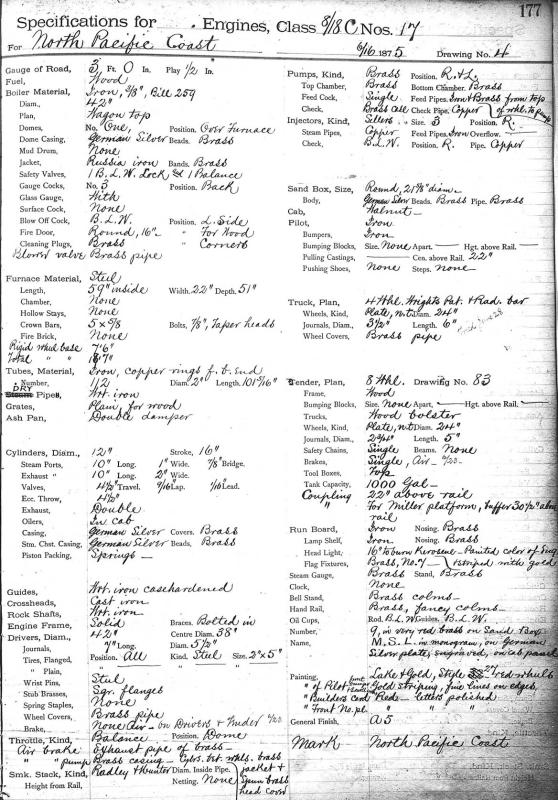 177
Specifications for Engines, Class 8/18 C Nos. 17
For North Pacific Coast 6/16 1875 Drawing No. 4
Gauge of Road, 3 Ft. 0 In. Play 1/2 In.
Fuel, Wood
Boiler Material, Iron, 3/8", Bill 259
Diam., 42"
Plan, Wagon top
Domes, No. One, Position. Over Furnace
Dome Casing, German Silver Beads. Brass
Mud Drum, None
Jacket, Russia iron Bands. Brass
Safety Valves, 1 B.L.W. Lock & 1 Balance
Gauge Cocks, No. 3 Position. Back
Glass Gauge, With
Surface Cock, None
Blow Off Cock, B.L.W. Position, L. Side
Fire Door, Round, 16" " For Wood
Cleaning Plugs, Brass " Corners
Blower valve Brass pipe
Furnace Material, Steel
Length, 59" inside Width. 22" Depth. 51"
Chamber, None
Hollow Stays, None
Crown Bars, 5 x 5/8 Bolts, 7/8", Taper heads
Fire Brick, None
Rigid whel base 7'6"
Total " "
Tubes, Material, Iron, copper rings f. b. End
Number, 112 Diam. 2" Length. 101 9/16"
DRY
Steam Pipes, Wrt. iron
Grates, Plain, for wood
Ash Pan, Double damper
Cylinders, Diam., 12" Stroke, 16"
Steam Ports, 10" Long. 1" Wide. 7/8" Bridge.
Exhaust " 10" Long. 2" Wide.
Valves, 4 1/2" Travel. 9/16" Lap. 1/16" Lead.
Ecc. Throw, 4 1/2"
Exhaust, Double
Oilers, In cab
Casing, German Silver Covers. Brass
Stm. Chst. Casing, German Silver Beads, Brass
Piston Packing, Springs
Guides, Wrt. iron casehardened
Crossheads, Cast iron
Rock Shafts, Wrt. iron
Engine Frame, Solid Braces. Bolted in
Drivers, Diam., 42" Centre Diam. 38"
Journals, 7" Long. Diam. 5 1/2"
Tires, Flanged, Position. All Kind. Steel Size. 2" x 5"
" Plain, " " "
Wrist Pins, Steel
Stub Brasses, Sgr. flanges
Spring Staples, None
Wheel Covers, Brass pipe
Brake, None Air - on Drivers & Tender 4/23
Throttle, Kind, Balance Position. Dome
Air brake Exhaust pipe of brass
" " pump Brass casing - Cylrs. bet. whls. brass
Smk. Stack, Kind, Radley & Hunter Diam. Inside Pipe. jacket &
Height from Rail, Netting. None Spun brass
head cover
Pumps, Kind, Brass Position. R. & L.
Top Chamber, Brass Bottom Chamber. Brass
Feed Cock, Single Feed Pipes. Iron & Brass from top
Check, Brass Case Check Pipe. Copper of whl. to pump
Injectors, Kind, Sellers Size. 3 Position. R.
Steam Pipes, Copper Feed Pipes. Iron Overflow.
Check, B.L.W. Position, R. Pipe. Copper
Sand Box, Size, Round, 21 5/8" diam
Body, German Silver Beads. Brass Pipe. Brass
Cab, Walnut
Pilot, Iron
Bumpers, Iron
Bumping Blocks, Size. None Apart. Hgt. above Rail.
Pulling Castings, Cen. above Rail. 22"
Pushing Shoes, None Steps. None
Truck, Plan, 4 Whl. Wrights Pat. & Rad. bar
Wheels, Kind, Plate, n.t. Diam. 24"
Journals, Diam., 3 1/2" Length. 6"
Wheel Covers, Brass pipe
Tender, Plan, 8 Whl. Drawing No. 83
Frame, Wood
Bumping Blocks, Size. None Apart. Hgt. above Rail.
Trucks, Wood bolster
Wheels, Kind, Plate, n.t. Diam. 24"
Journals, Diam., 2 3/4" Length. 5"
Safety Chains, Single Beams. None
Brakes, Single, Air 4/23
Tool Boxes, Top
Tank Capacity, 1000 Gal
Coupling 22" above rail
" For Miller platform, buffer 30 1/2" above
rail
Run Board, Iron Nosing. Brass
Lamp Shelf, Iron Nosing. Brass
Head Light, 16" to burn Kerosene - Painted color of Eng
Flag Fixtures, Brass, No. 7 & striped with gold
Steam Gauge, Brass Stand, Brass
Clock, None
Bell Stand, Brass colms
Hand Rail, Brass, fancy colms
Oil Cups, Rod. B.L.W. Guides. B.L.W.
Number, 9, in very red brass on Sand Box
Name, M. S. L. in monogram, on German
Silver plate, engraved, on cab panel
Painting, Lake & Gold, Style 27 red wheels
" of Pilot Gold striping, fine lines on edges,
" Builders card Red letters polished
" Front No. pl " " "
General Finish, A 5
Mark North Pacific Coast